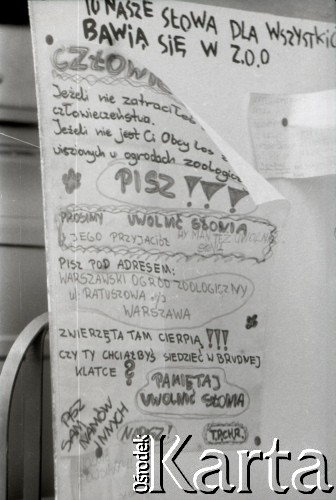 TO NASZE SŁOWA DLA WSZYSTKI
BAWIĄ SIĘ W Z.O.O
CZŁOWI
Jeżeli nie zatraciłeś
człowieczeństwa.
Jeśli nie jest Ci Obcy Los z
więzionych w ogrodach zoologicz
PISZ!!!
PROSIMY UWOLNIĆ SŁONIA
JEGO PRZYJACIÓŁ
PISZ POD ADRESEM:
WARSZAWSKI OGRÓD ZOOLOGICZNY
ul. RATUSZOWA
WARSZAWA
ZWIERZĘTA TAM CIERPIĄ!!!
CZY TY CHCIAŁBYŚ SIEDZIEĆ W BRUDNEJ
KLATCE?
PAMIĘTAJ
UWOLNIĆ SŁONIA
PISZ
SAM
NAMÓW
INNYCH
NAPISZ!
Ośrodek
Karta